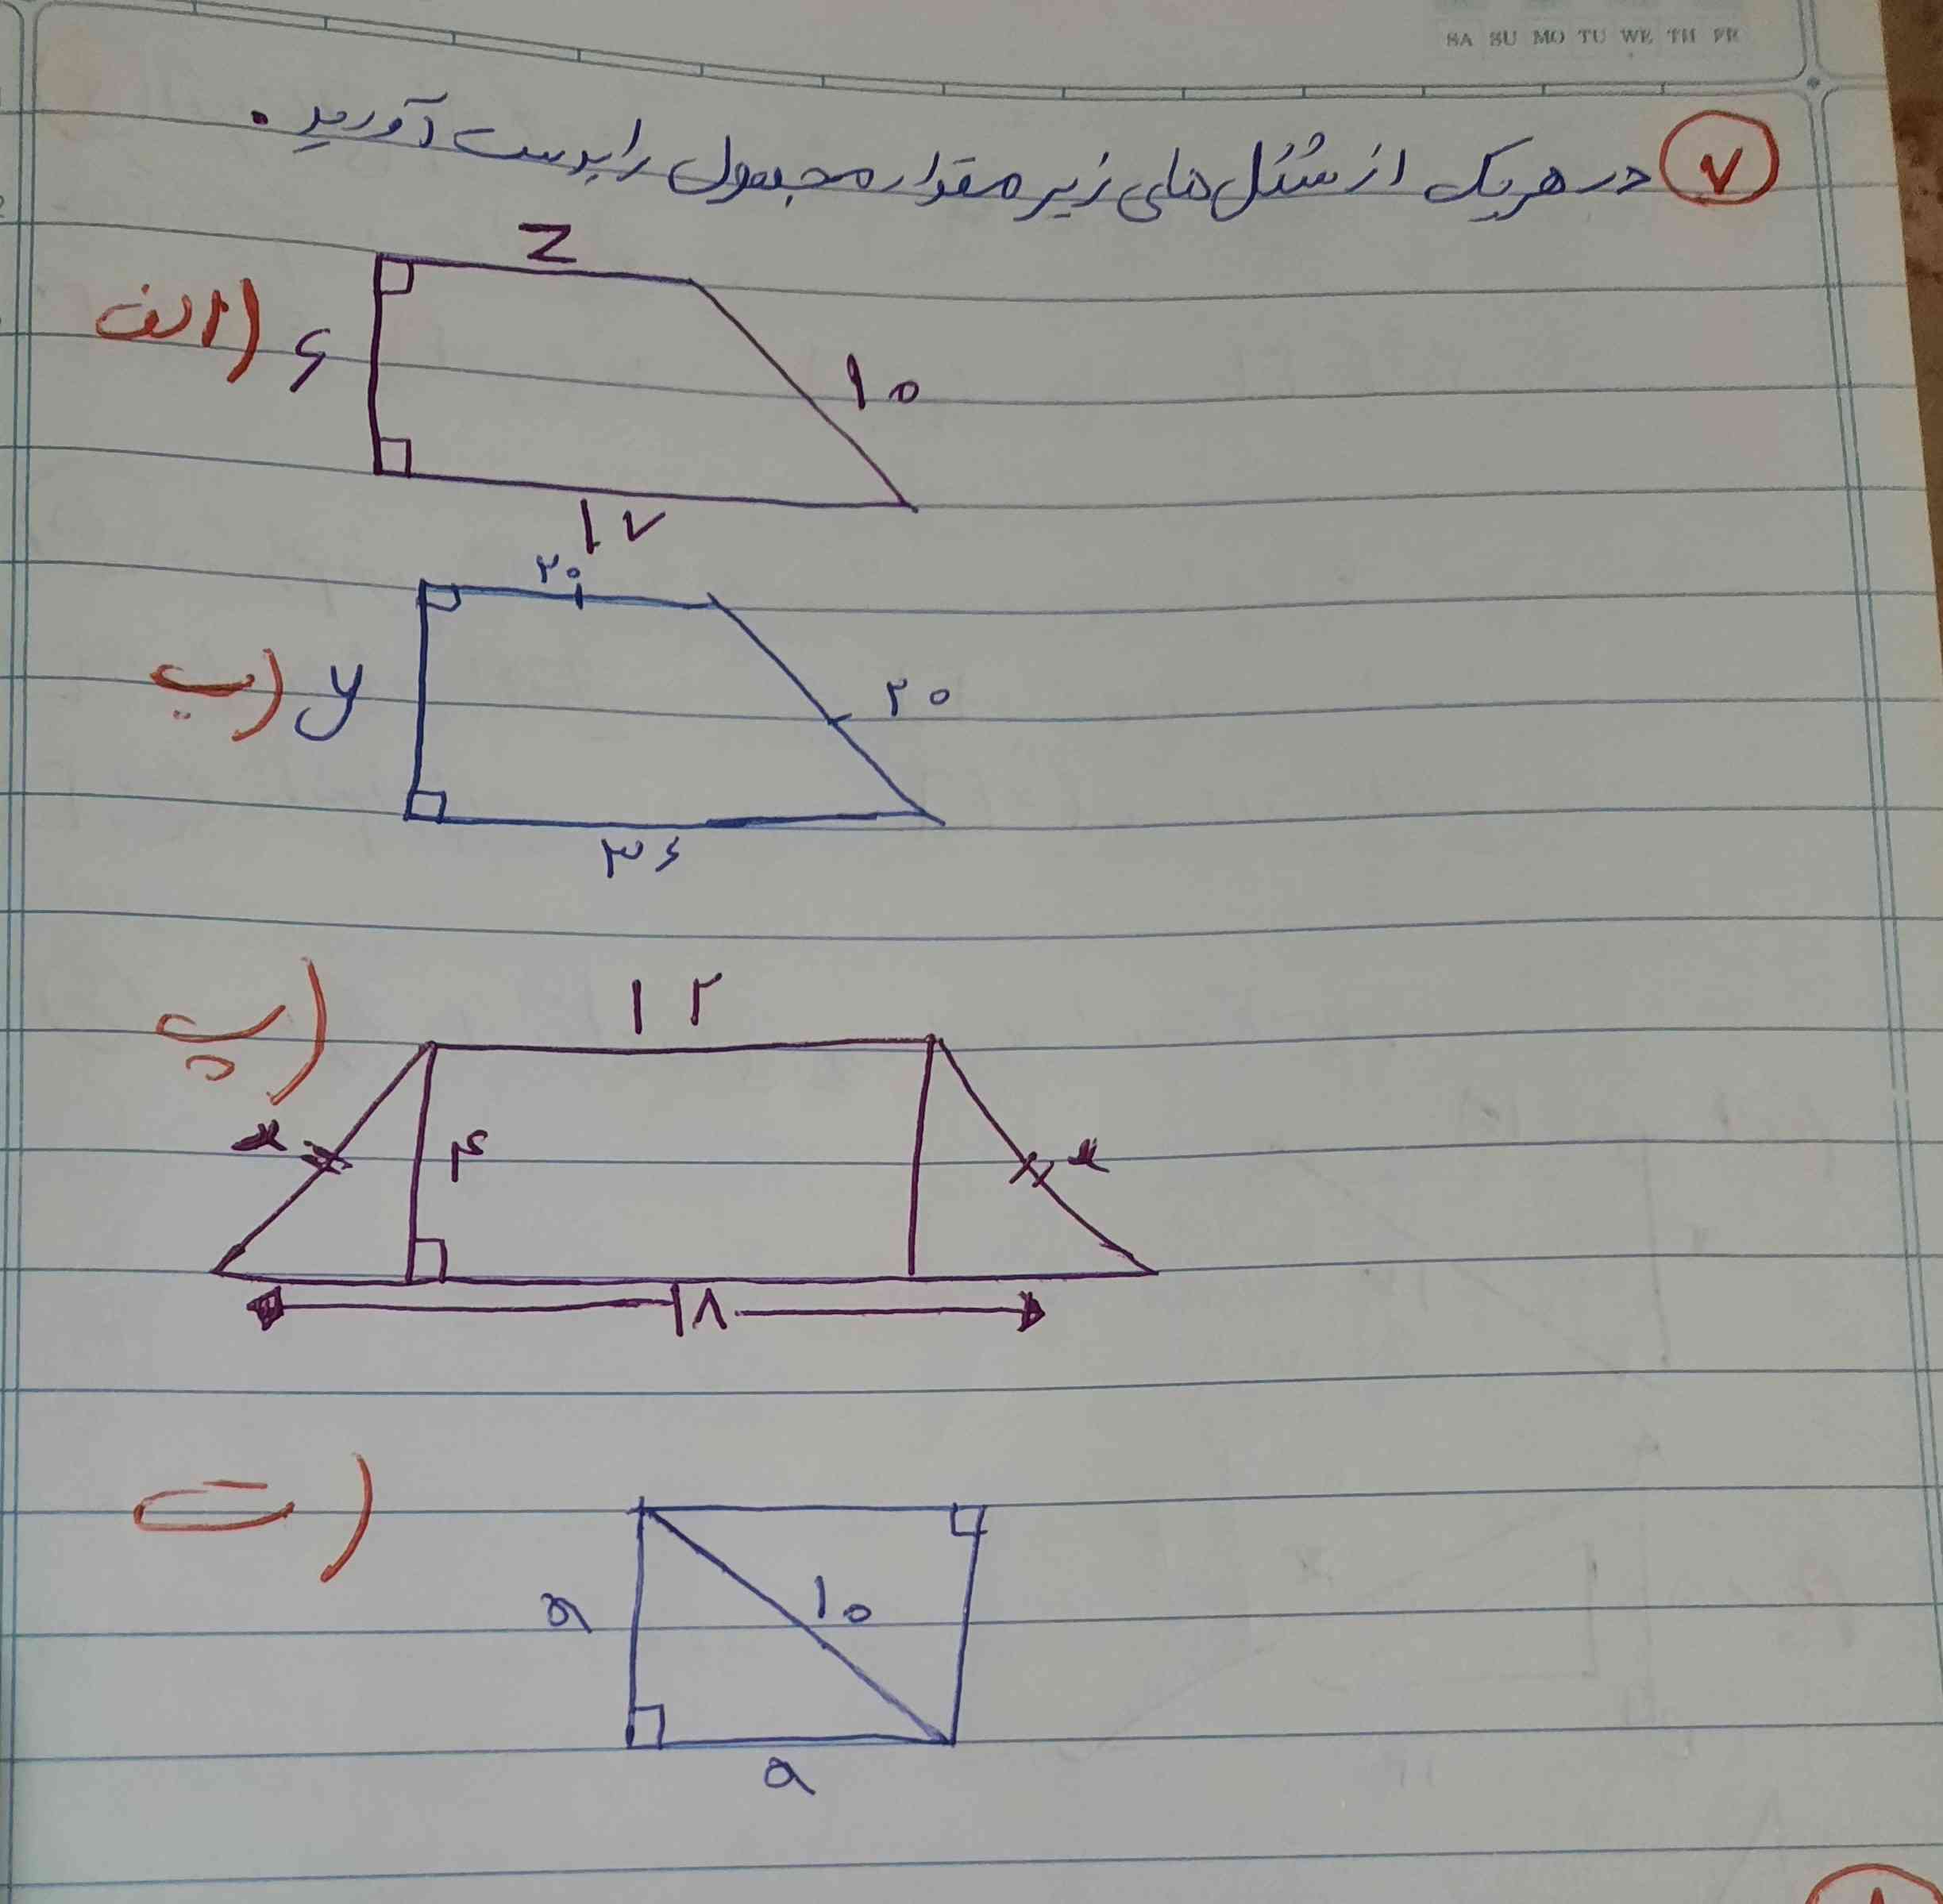 SA SU MO TU WE TH FR
۷ در هر یک از شکل های زیر مقدار مجهول را بدست آورید .
z
الف) ۶
۱۰
۱۷
۲۰
ب) y
۲۰
۳۶
پ)
۱۲
x ۴ x
۱۸
ت)
a ۱۰
a